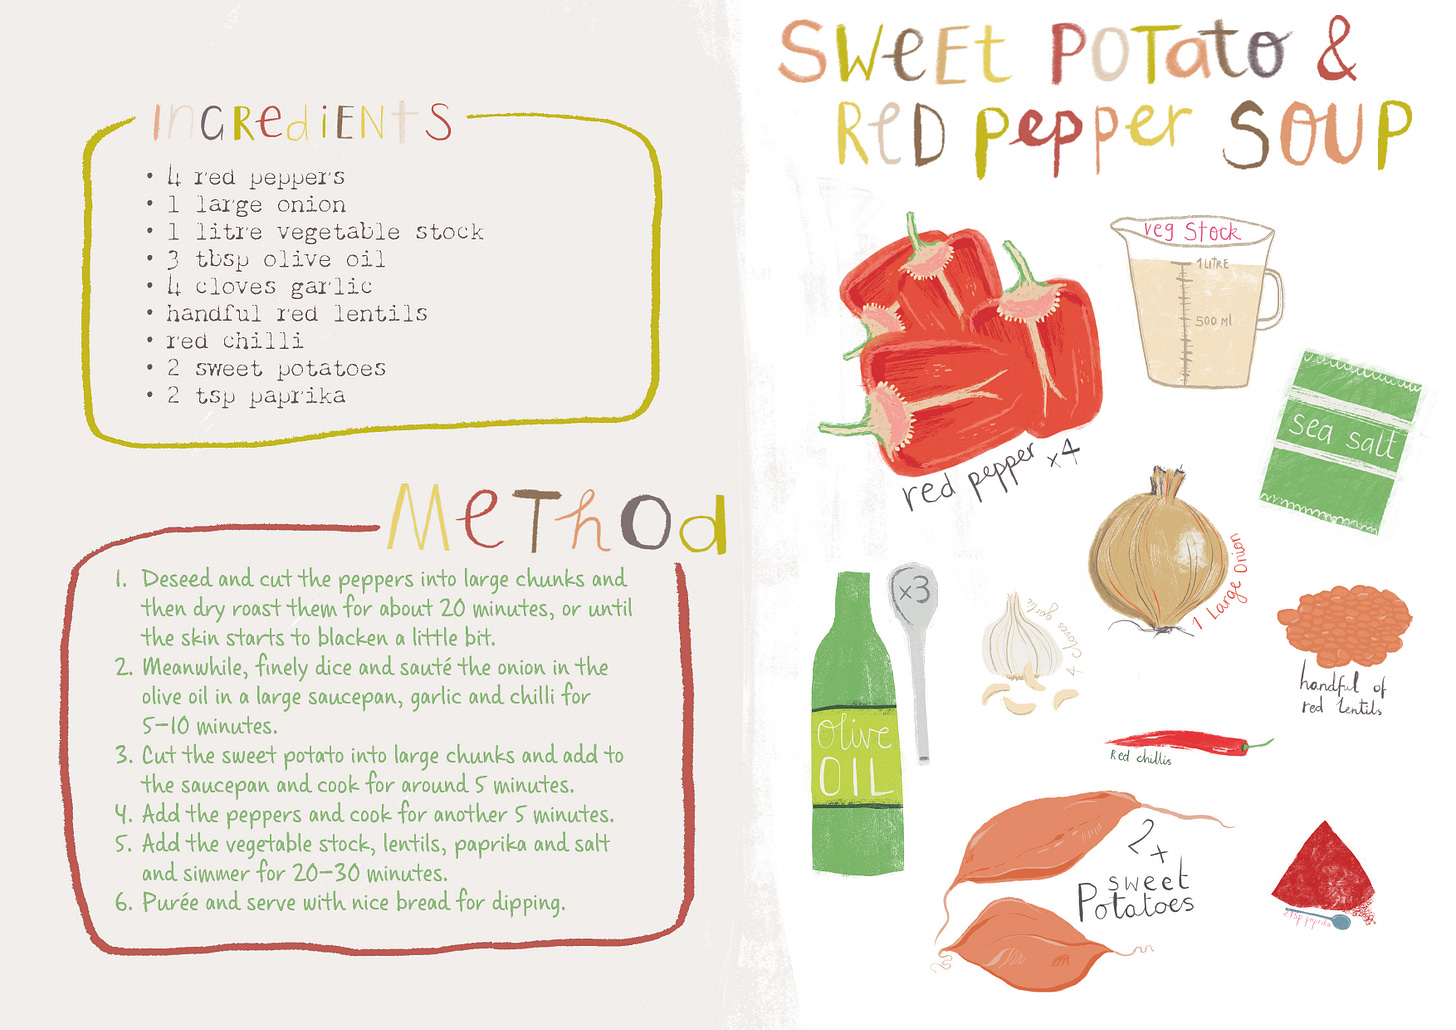 INGREdiENtS
• 4 red peppers
• 1 large onion
• 1 litre vegetable stock
• 3 tbsp olive oil
• 4 cloves garlic
• handful red lentils
• red chilli
• 2 sweet potatoes
• 2 tsp paprika
MeThod
1. Deseed and cut the peppers into large chunks and
then dry roast them for about 20 minutes, or until
the skin starts to blacken a little bit.
2. Meanwhile, finely dice and sauté the onion in the
olive oil in a large saucepan, garlic and chilli for
5–10 minutes.
3. Cut the sweet potato into large chunks and add to
the saucepan and cook for around 5 minutes.
4. Add the peppers and cook for another 5 minutes.
5. Add the vegetable stock, lentils, paprika and salt
and simmer for 20–30 minutes.
6. Purée and serve with nice bread for dipping.
SWeEt POTato &
ReD pepper SOUP
veg Stock
1 LITRE
500 ml
red pepper x4
sea salt
1 Large Onion
x3
Olive
OIL
4 cloves garlic
handful of
red lentils
Red chillis
2x
sweet
Potatoes
2 tsp paprika